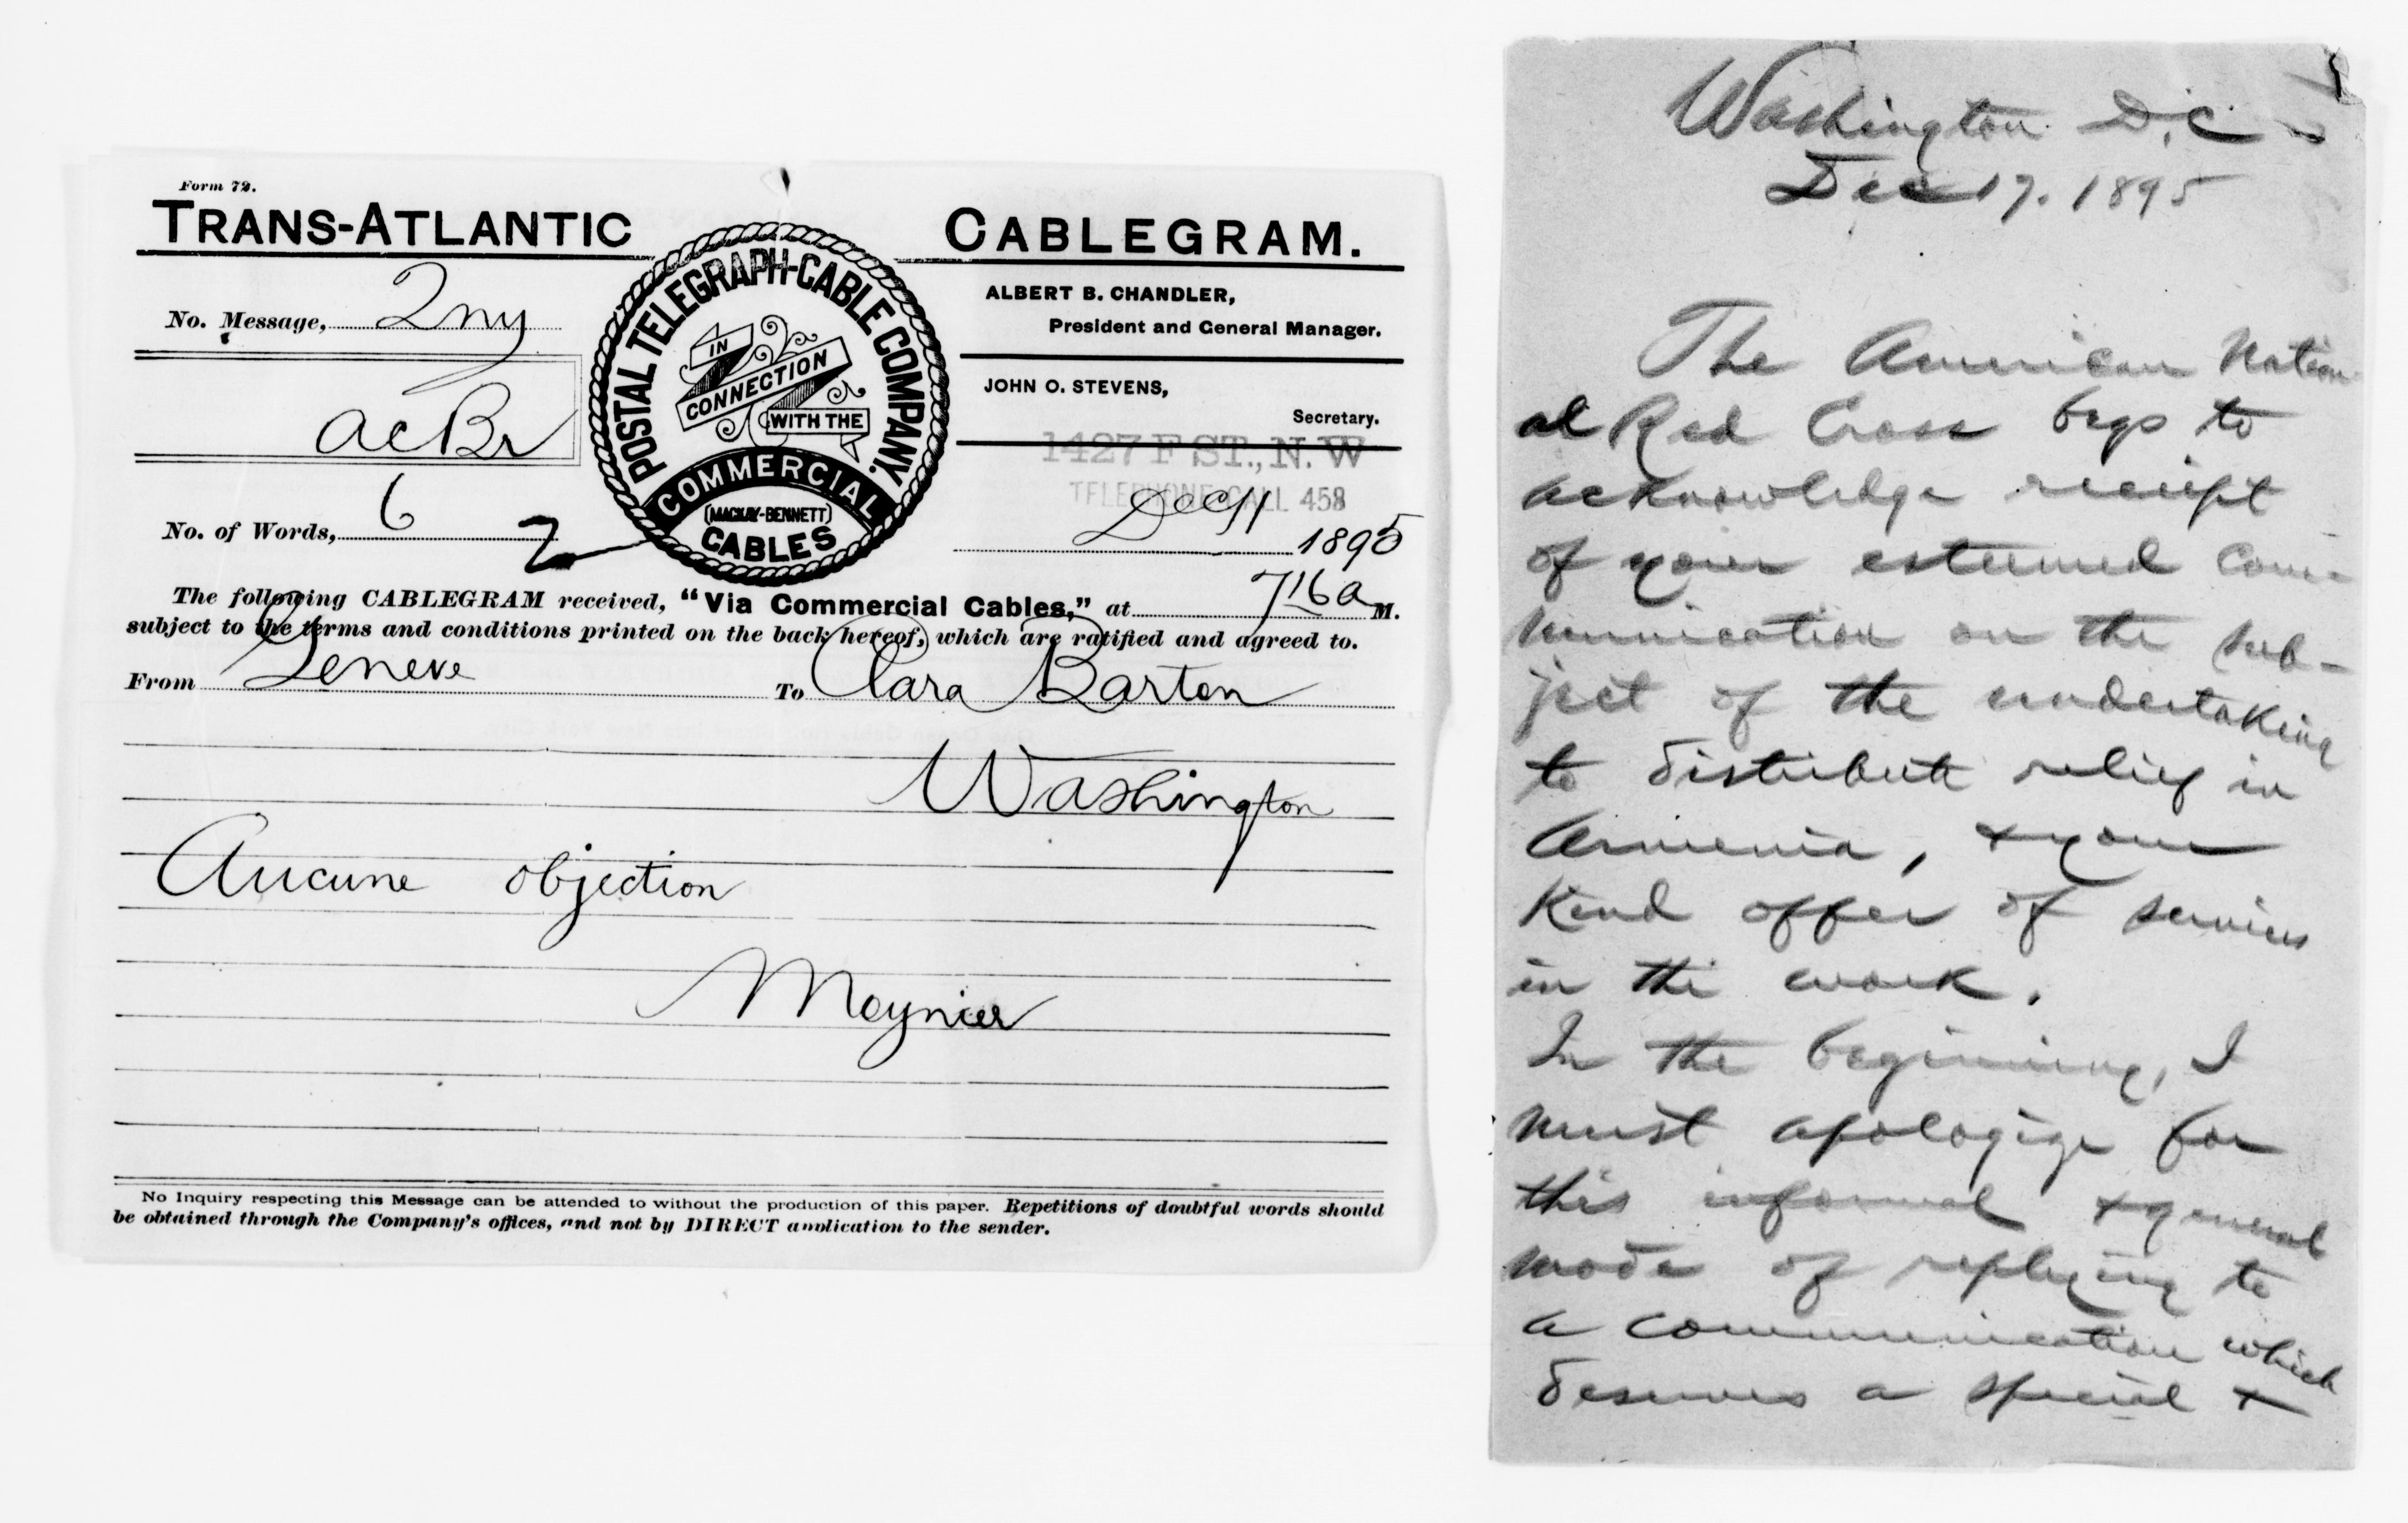 Form 72.
TRANS-ATLANTIC CABLEGRAM.
No. Message, 2ny
acBr
No. of Words, 6
POSTAL TELEGRAPH-CABLE COMPANY.
IN
CONNECTION
WITH THE
COMMERCIAL
(MACKAY-BENNETT)
CABLES
ALBERT B. CHANDLER,
President and General Manager.
JOHN O. STEVENS,
Secretary.
1427 F ST., N. W
TELEPHONE CALL 458
Dec 11 1895
The following CABLEGRAM received, "Via Commercial Cables," at 716a M.
subject to the terms and conditions printed on the back hereof, which are ratified and agreed to.
From Geneve To Clara Barton
Washington
Aucune objection
Moynier
No Inquiry respecting this Message can be attended to without the production of this paper. Repetitions of doubtful words should
be obtained through the Company's offices, and not by DIRECT application to the sender.
Washington D.C.
Dec 17. 1895
The American Nation
al Red Cross begs to
acknowledge receipt
of your esteemed com-
munication on the sub-
ject of the undertaking
to distribute relief in
Armenia, & your
kind offer of services
in the work.
In the beginning, I
must apologize for
this informal & general
mode of replying to
a communication which
deserves a special &